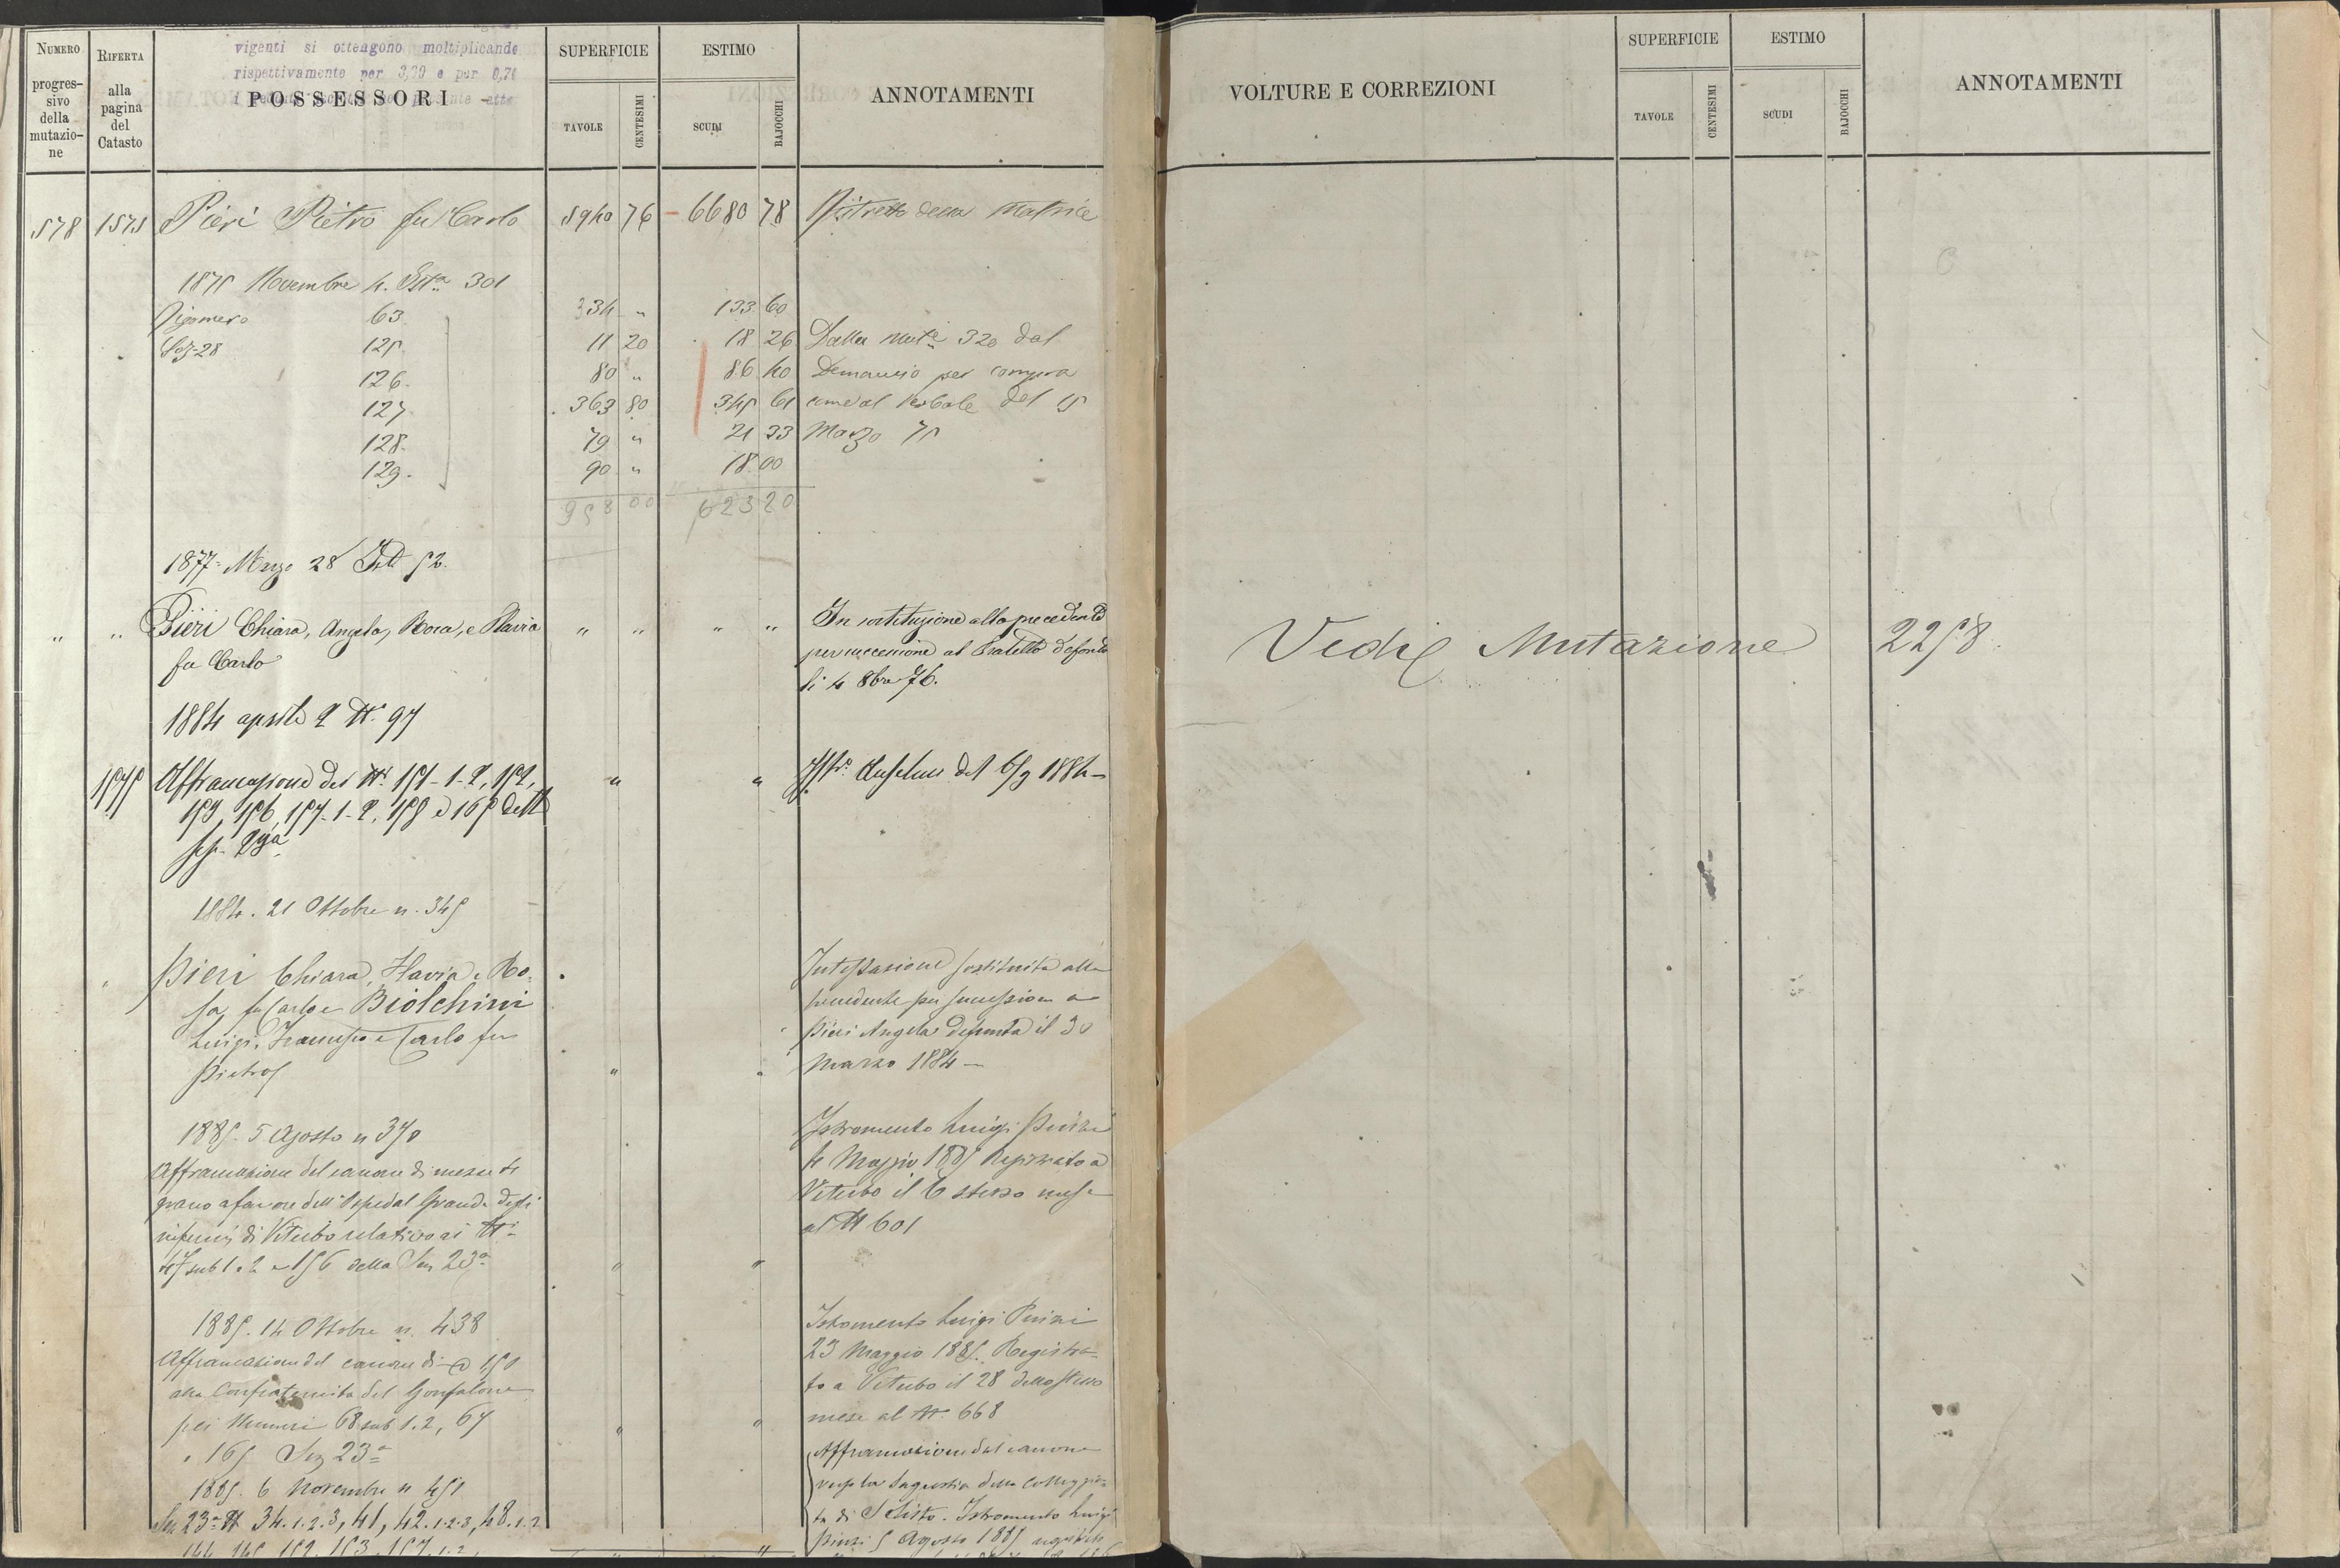 NUMERO
progres-
sivo
della
mutazio-
ne
RIFERTA
alla
pagina
del
Catasto
vigenti si ottengono moltiplicande
rispettivamente per 3,29 e per 0,76
POSSESSORI
SUPERFICIE
TAVOLE
CENTESIMI
ESTIMO
SCUDI
BAJOCCHI
ANNOTAMENTI
578 1575 Pieri Pietro fu Carlo 5940 76 6680 78 Ristretto della Matrice
1875 Novembre 4. 301
63 234 " 133 60
Sez. 28 125 11 20 18 26 Dalla mut.e 320 dal
126. 80 " 86 40 Demanio per compra
127. 363 80 345 61 come al Verbale del 15
128. 79 " 21 33 Marzo 75
129. 90 " 18 00
958 00 623 20
1877. Marzo 28 52.
" " Pieri Chiara, Angela, Rosa, e Flavia " " " " In sostituzione alla precedente
fu Carlo per successione al Fratello defonto
li 4 8bre 76.
1884 aprile 2 N. 97
1575 Affrancazione dei N.i 151-1-2, 152, " " Istr.o Anselmi del 6/3 1884
153, 156, 157-1-2, 158 e 165 della
sez. 23a
1884. 21 Ottobre n. 345
Pieri Chiara, Flavia e Ro-
sa fu Carlo e Biolchini
Luigi, Francesco e Carlo fu
Pietro " "
Intestazione sostituita alla
precedente per successione a
Pieri Angela defunta il 30
marzo 1884 -
1885. 5 Agosto n 370
Affrancazione del canone di
grano a favore dell'Ospedal Grande degli
infermi di Viterbo relativo ai N.i
47 sub 1. 2 e 156 della Sez 23a " "
Istromento Luigi Pinzi
4 Maggio 1885 Registrato a
Viterbo il 6 stesso mese
al N 601
1885. 14 Ottobre n. 438
Affrancazione del canone di 1,50
alla Confraternita del Gonfalone
pei Numeri 68 sub 1.2, 67 " "
e 165 Sez 23a
Istromento Luigi Pinzi
23 Maggio 1885. Registra-
to a Viterbo il 28 dello stesso
mese al N. 668
1885. 6 Novembre n 451
Sez 23a N 34.1.2.3, 41, 42.1.2.3, 48.1.2
144 145 152. 153. 157.1.2,
Affrancazione del canone
verso la Sagrestia della Collegia-
ta di S Sisto. Istromento Luigi
Pinzi 5 Agosto 1885
VOLTURE E CORREZIONI
SUPERFICIE
TAVOLE
CENTESIMI
ESTIMO
SCUDI
BAJOCCHI
ANNOTAMENTI
Vedi Mutazione 2258.